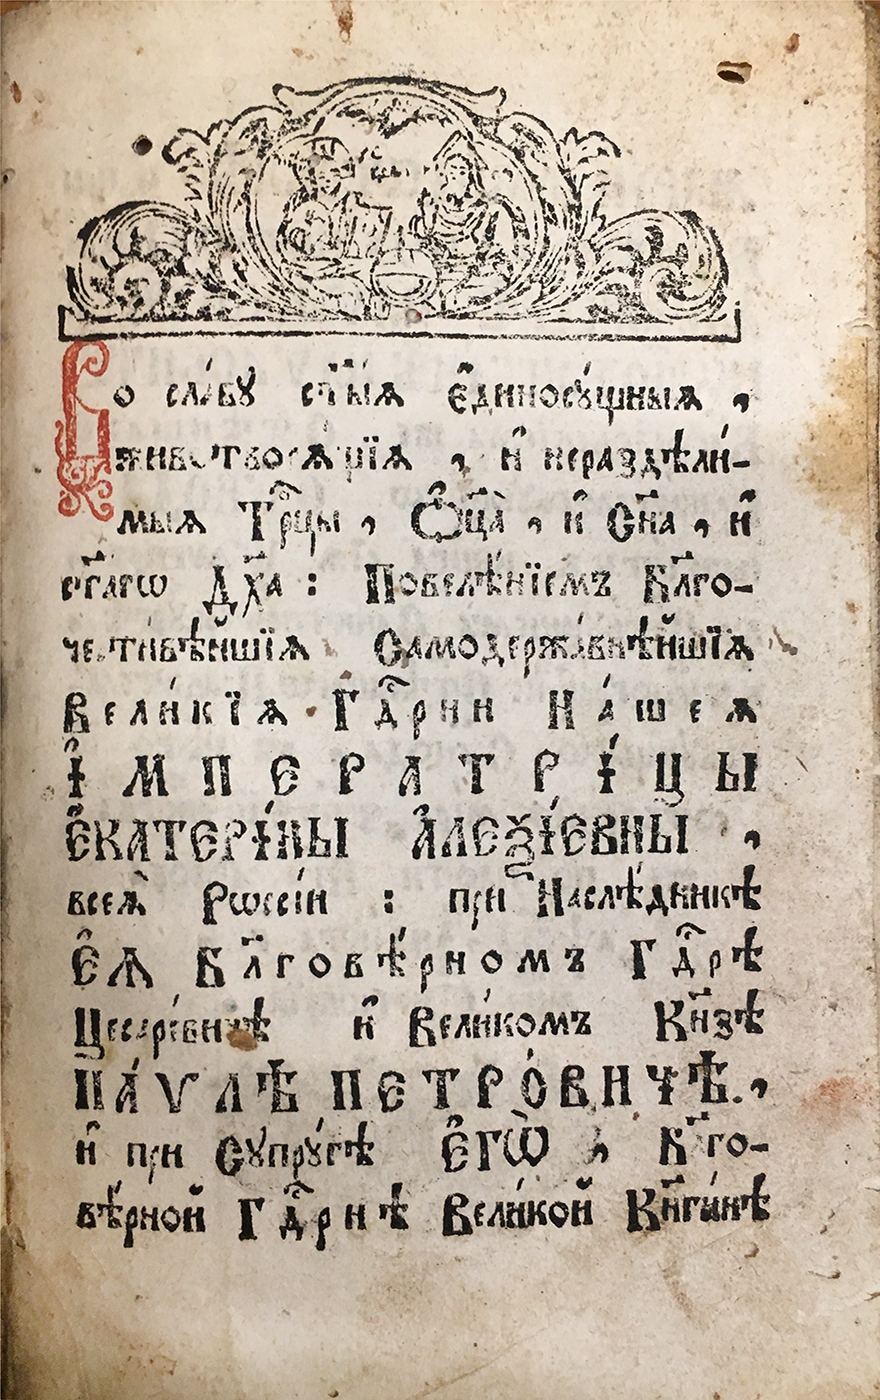 Во сла́вꙋ ст҃ы́ѧ є҆диносꙋ́щныѧ ,
животворѧ́щїѧ , и҆ нераздѣли́-
мыѧ Трⷪ҇цы , Ѻ҆ц҃а̀ , и҆ Сн҃а , и҆
ст҃а́гѡ Дх҃а : Повелѣ́нїемъ Бл҃го-
чести́вѣйшїѧ Самодержа́внѣйшїѧ
Вели́кїѧ Гдⷭ҇рни На́шеѧ
І҆МПЕРАТРІ́ЦЫ
Є҆КАТЕРІ́НЫ А҆ЛЕѮІ́ЕВНЫ ,
всеѧ̀ Рѡссі́и : при Наслѣ́дникѣ
Є҆Ѧ̀ Бл҃говѣ́рномъ Гдⷭ҇рѣ
Цесаре́вичѣ и҆ Вели́комъ Кн҃зѣ
ПА́ѴЛѢ ПЕТРО́ВИЧѢ ,
и҆ при Сꙋпрꙋ́гѣ Є҆ГѠ̀ , Бл҃го-
вѣ́рной Гдⷭ҇рнѣ Вели́кой Кн҃ги́нѣ